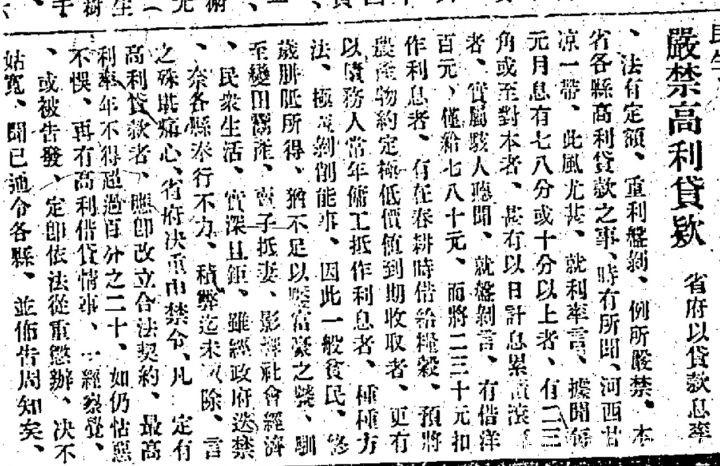 嚴禁高利貸欵 省府以貸款息率
、法有定額、重利盤剝、例所嚴禁、本
省各縣高利貸款之事、時有所聞、河西甘
凉一帶、此風尤甚、就利率言、據聞每
元月息有七八分或十分以上者、有二三
角或至對本者、甚有以日計息累滾
者、實屬駭人聽聞、就盤剝言、有借洋
百元、僅給七八十元、而將二三十元扣
作利息者、有在春耕時借給糧穀、預將
農產物約定極低價值到期收取者、更有
以債務人常年傭工抵作利息者、種種方
法、極盡剝削能事、因此一般貧民、終
歲胼胝所得、猶不足以富豪之、馴
至變田鬻產、賣子抵妻、影響社會經濟
、民衆生活、實深且鉅、雖經政府迭禁
、奈各縣奉行不力、積弊迄未除、言
之殊堪痛心、省府決重申禁令、凡定有
高利貸款者、應卽改立合法契約、最高
利率年不得超過百分之二十、如仍怙惡
不悛、再有高利借貸情事、一經察覺、
、或被告發、定卽依法從重懲辦、決不
姑寬、聞已通令各縣、並佈告周知矣、